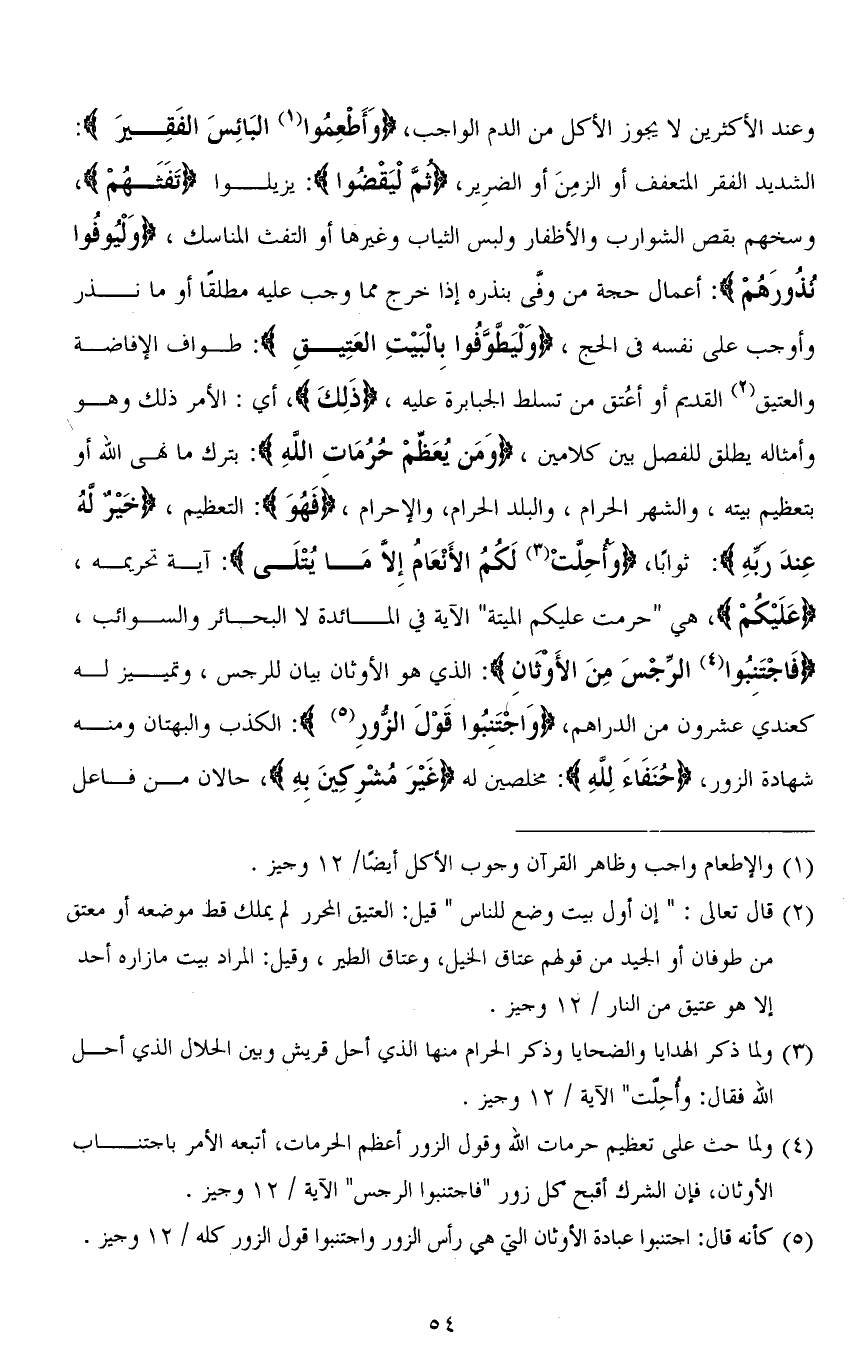 وعند الأكثرين لا يجوز الأكل من الدم الواجب، ﴿وَأَطْعِمُوا(١) البَائِسَ الفَقِيرَ ﴾:
الشديد الفقر المتعفف أو الزمِنَ أو الضرير، ﴿ثُمَّ لْيَقْضُوا ﴾: يزيلوا ﴿تَفَثَهُمْ ﴾،
وسخهم بقص الشوارب والأظفار ولبس الثياب وغيرها أو التفث المناسك ، ﴿وَلْيُوفُوا
نُذُورَهُمْ ﴾: أعمال حجة من وفَّى بنذره إذا خرج مما وجب عليه مطلقًا أو ما نذر
وأوجب على نفسه فى الحج ، ﴿وَلْيَطَّوَّفُوا بِالْبَيْتِ العَتِيقِ ﴾: طواف الإفاضة
والعتيق(٢) القديم أو أعُتق من تسلط الجبابرة عليه ، ﴿ذَلِكَ ﴾، أي : الأمر ذلك وهو
وأمثاله يطلق للفصل بين كلامين ، ﴿وَمَن يُعَظِّمْ حُرُمَاتِ اللَّهِ ﴾: بترك ما نهى الله أو
بتعظيم بيته ، والشهر الحرام ، والبلد الحرام، والإحرام ، ﴿فَهُوَ ﴾: التعظيم ، ﴿خَيْرٌ لَّهُ
عِندَ رَبِّهِ ﴾: ثوابًا، ﴿وَأُحِلَّتْ(٣) لَكُمُ الأَنْعَامُ إِلاَّ مَا يُتْلَى ﴾: آية تحريمه ،
﴿عَلَيْكُمْ ﴾، هي "حرمت عليكم الميتة" الآية في المائدة لا البحائر والسوائب ،
﴿فَاجْتَنِبُوا(٤) الرِّجْسَ مِنَ الأَوْثَانِ ﴾: الذي هو الأوثان بيان للرجس ، وتمييز له
كعندي عشرون من الدراهم، ﴿وَاجْتَنِبُوا قَوْلَ الزُّورِ(٥) ﴾: الكذب والبهتان ومنه
شهادة الزور، ﴿حُنَفَاءَ لِلَّهِ ﴾: مخلصين له ﴿غَيْرَ مُشْرِكِينَ بِهِ ﴾، حالان من فاعل
(١) والإطعام واجب وظاهر القرآن وجوب الأكل أيضًا/ ١٢ وجيز .
(٢) قال تعالى : " إن أول بيت وضع للناس " قيل: العتيق المحرر لم يملك قط موضعه أو معتق
من طوفان أو الجيد من قولهم عتاق الخيل، وعتاق الطير ، وقيل: المراد بيت مازاره أحد
إلا هو عتيق من النار / ١٢ وجيز .
(٣) ولما ذكر الهدايا والضحايا وذكر الحرام منها الذي أحل قريش وبين الحلال الذي أحل
الله فقال: وأُحِلَّت" الآية / ١٢ وجيز .
(٤) ولما حث على تعظيم حرمات الله وقول الزور أعظم الحرمات، أتبعه الأمر باجتناب
الأوثان، فإن الشرك أقبح كل زور "فاجتنبوا الرجس" الآية / ١٢ وجيز .
(٥) كأنه قال: اجتنبوا عبادة الأوثان التي هي رأس الزور واجتنبوا قول الزور كله / ١٢ وجيز .
٥٤